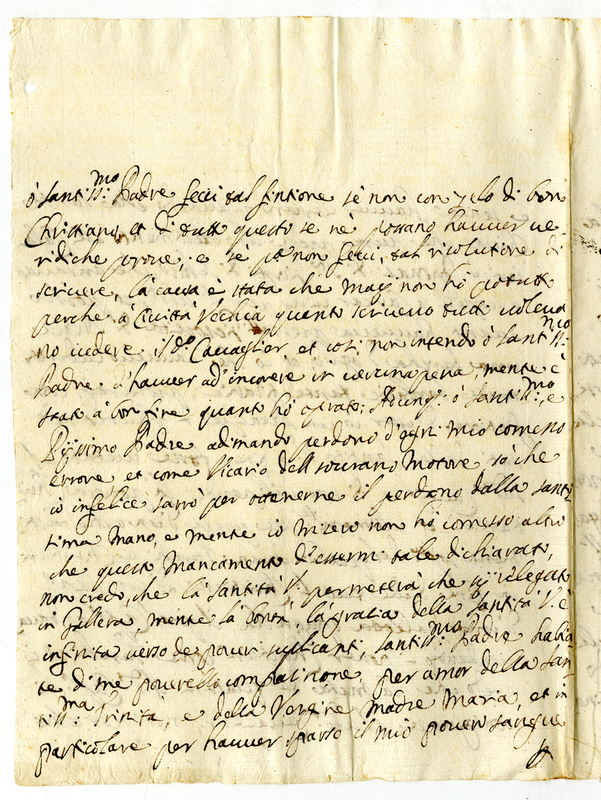 ò Santiss:mo Padre feci tal fintione se non con zelo di bon
Christiano, et di tutto questo se ne possano hauuer ue
ridiche proue. e se non feci, tal risolutione di
scriuere, la causa è stata che maj non hò potuto
perche à Ciuità Vechia quanto scriueuo tutto uoleua
no uedere il do Cauaglier, et cosi non intendo ò Santiss:mo
Padre. d'hauuer ad'incorere in ueruna pena, mente è
stato à bon fine quanto hò oprato; ò Santiss:mo, e
Pijssimo Padre adimando perdono d'ogni mio comesso
errore, et come Vicario dell sourano Motore, sò che
io infelice sarrò per ottenerne il perdono dalla santis
tima Mano, e mente io misero non hò comesso altro
che questo mancamento d'essermi tale dichiarato,
non credo, che la Santità V. permetterà che sij relegato
in Gallera, mente la bontà, la gratia della Santità V. è
infinita uerso de poueri suplicanti, Santiss:mo Padre habia
te di me pouerello compatione, per amor della San
tiss:ma Trinità, e della Vergine Madre Maria, et in
particolare per hauuer sparso il mio pouero sangue